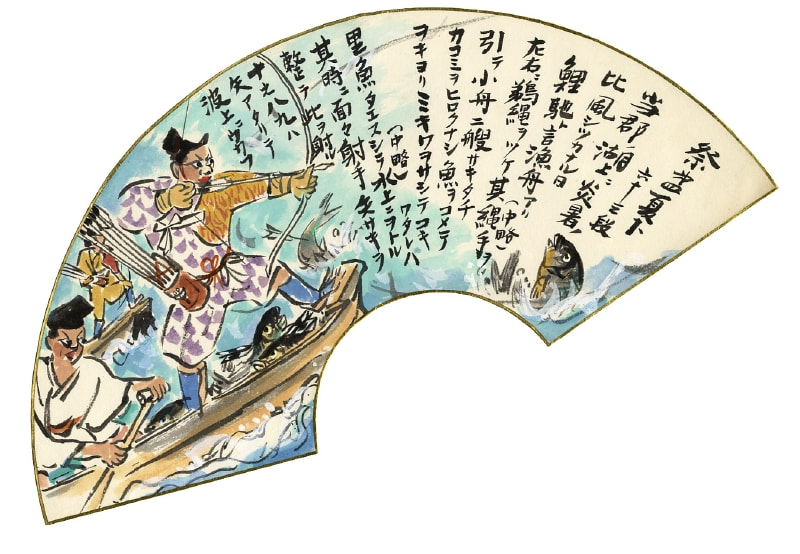 祭 夏下
六十三段
当郡ノ湖上ニ炎暑ノ
比風シツカナル日
鯉馳ト言漁舟アリ
(中略)
左右ニ鵜縄ヲツケ其縄手ヲ
引テ小舟二艘サキタチ
カコミヲヒロクナシ魚ヲコメテ
ヲキヨリミキワヲサシテコキ
ワタレハ
(中略)
里魚タエスシテ水上ニヲトル
其時ニ面々射手矢サキヲ
整テ此ヲ射ル
十之八九ハ
矢アタリテ
波上ニウカフ